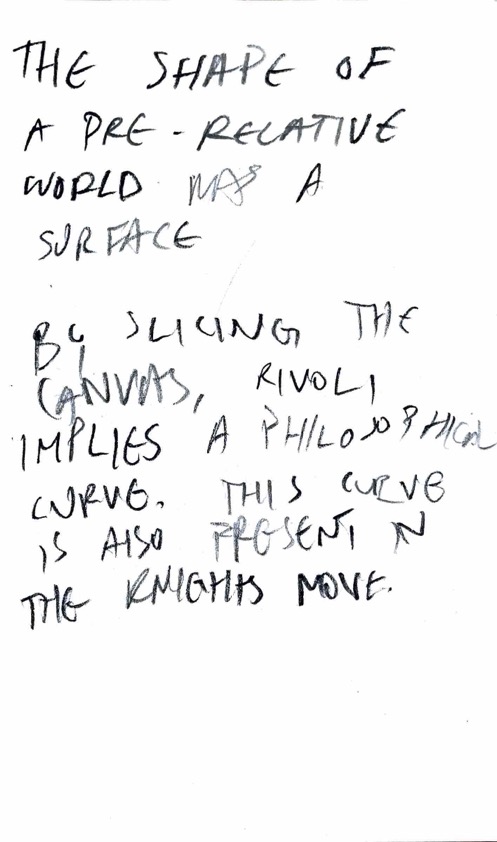 THE SHAPE OF
A PRE-RELATIVE
WORLD HAS A
SURFACE
BY SLICING THE
CANVAS, RIVOLI
IMPLIES A PHILOSOPHICAL
CURVE. THIS CURVE
IS ALSO PRESENT IN
THE KNIGHTS MOVE.